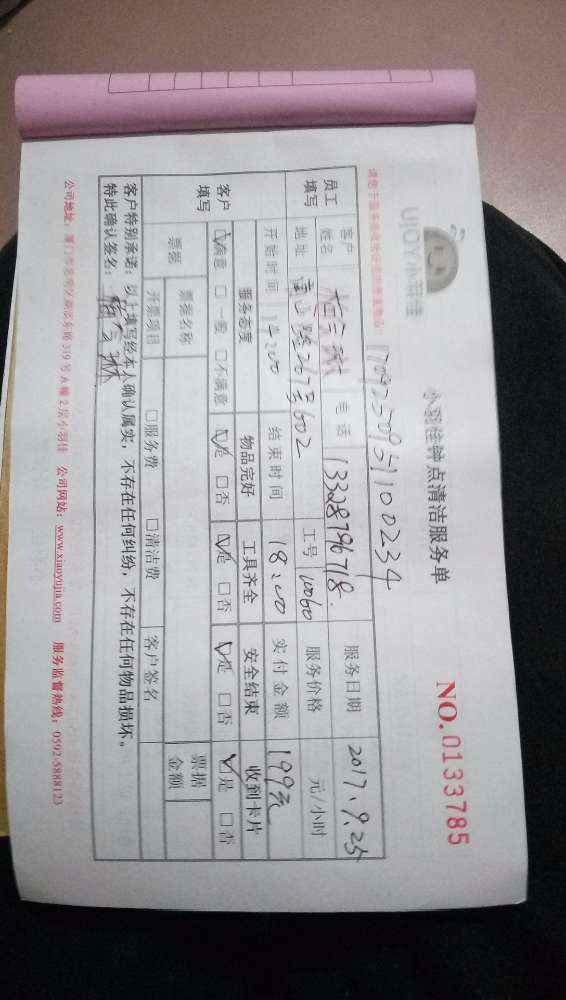 UJOY小羽佳
小羽佳钟点清洁服务单
NO.0133785
17092509511100234
员工填写
客户姓名 电话 13328796718. 服务日期 2017.9.25
地址 267号602 工号 10060 服务价格 元/小时
开始时间 14:00 结束时间 18:00 实付金额 199元
客户填写
服务态度 物品完好 工具齐全 安全结束 收到卡片
☑满意 □一般 □不满意 ☑是 □否 ☑是 □否 ☑是 □否 ☑是 □否
票据 票据名称 票据金额
开票项目 □服务费 □清洁费 客户签名
客户特别承诺：以上填写经本人确认属实，不存在任何纠纷，不存在任何物品损坏。
特此确认签名：
公司地址：厦门市思明区 319号A幢2层小羽佳 公司网站：www.xiaoyujia.com 服务监督热线：0592-5888123